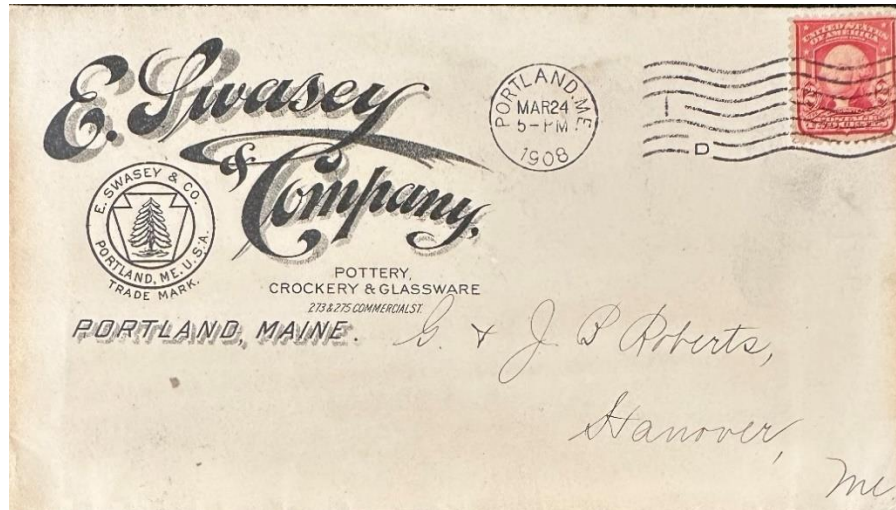 E. Swasey
&
Company,
E. SWASEY & CO.
PORTLAND, ME. U.S.A.
TRADE MARK.
POTTERY,
CROCKERY & GLASSWARE
273 & 275 COMMERCIAL ST.
PORTLAND, MAINE.
PORTLAND, ME.
MAR 24
5-PM
1908
D
UNITED STATES
OF AMERICA
G. & J B Roberts,
Hanover,
Me.